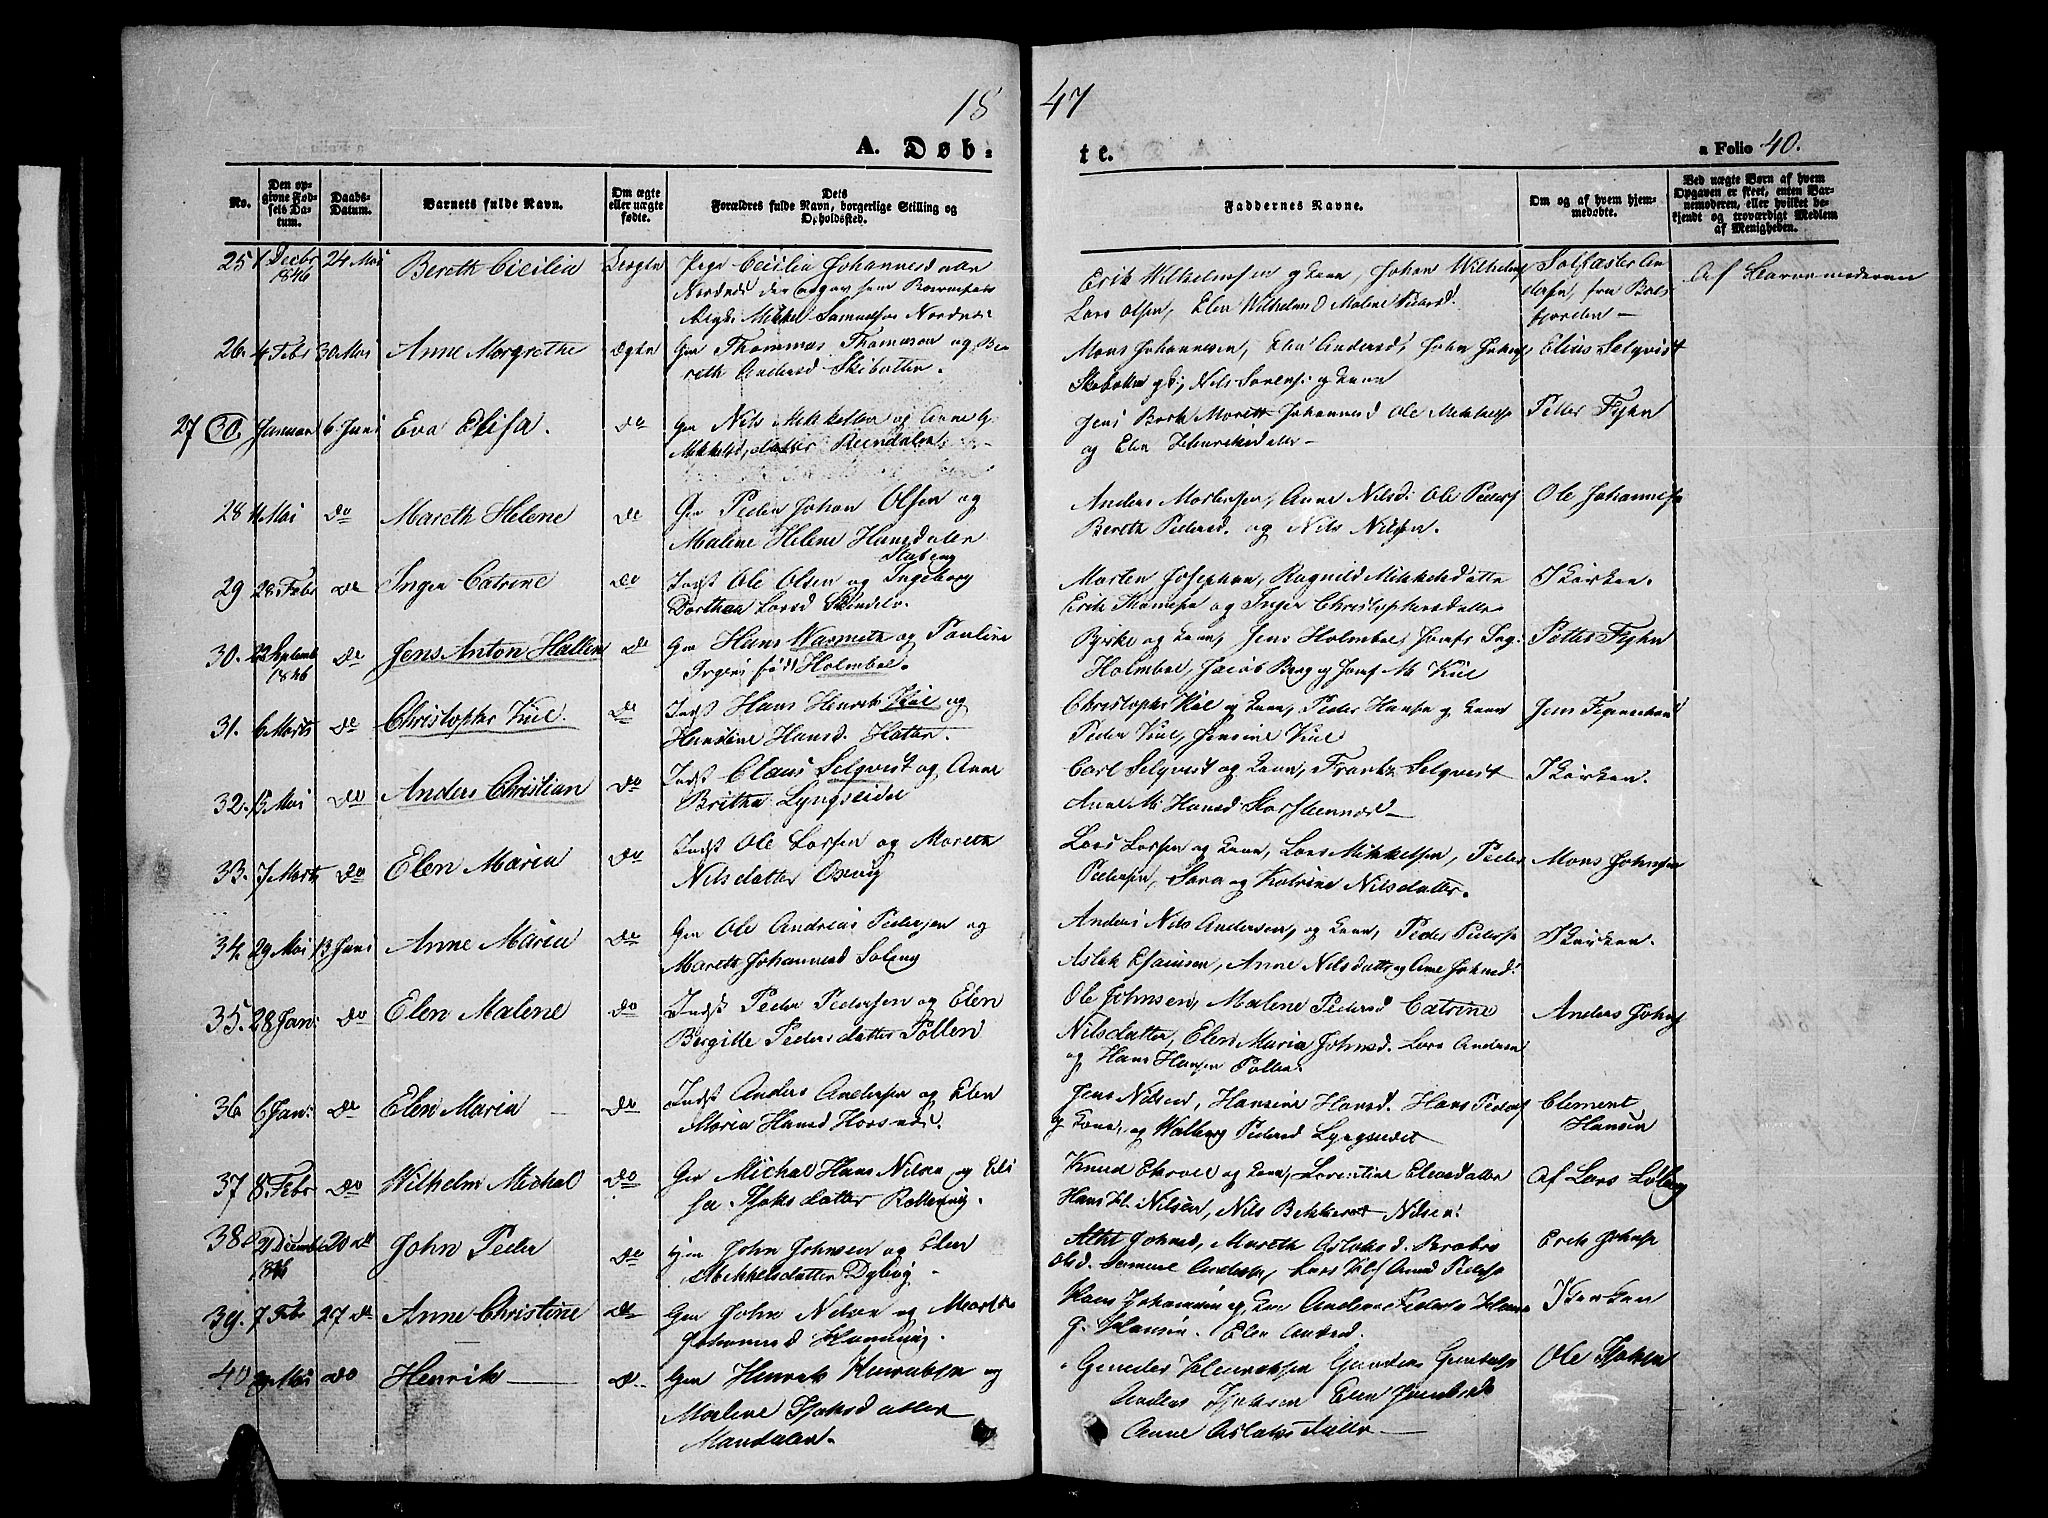 18 47
A. Døb- te. a Folio 40.
No.
Den op-
givne Fød-
sels Da-
tum.
Daabs-
Datum.
Barnets fulde Navn.
Om ægte
eller uægte
fødte.
Dets
Forældres fulde Navn, borgerlige Stilling og
Opholdssted.
Faddernes Navne.
Om og af hvem hjem-
medøbte.
Ved uægte Børn af hvem
Opgaven er skeet, enten Bar-
nemoderen, eller hvilket be-
kjendt og troværdigt Medlem
af Menigheden.
25 1 Decbr 1846 24 Mai Bereth Cicilia Uægte Pige Cecilia Johannesd
Nordnæs Mikkel Samuelsen Nordnæs
Erik Wilhelmsen og Kone, Johan Wilhelms
Lars Olsen, Elen Wilhelmsd Malene Pedersd.
Af Barnemoderen
26. 4 Febr 30 Mai Anne Margrethe Ægte Gm Thommas Thomason og Be
reth Andersd Skibotten.
Mons Johannesen, Elen Andersd, John Johns
Skibotten og K; Nils Sørens: og Kone
Elius Selqvist
27 30. Januar 6 Juni Eva Elisa. do Gm Nils Mikkelsen og Anne G.
Mikkelsdatter Reendalen
Jens Bork Mareth Johannesd Ole Mikkels
og Elen Henriksdatter
Peter Fyhn
28 Mai do Mareth Helene do Gm Peder Johan Olsen og
Malene Helene Hansdatter
Anders Mortensen, Anne Nilsd: Ole Peders
Bereth Pedersd. og Nils Nilsen.
Ole Johannes
29 28 Febr do Inger Catrine do Indst Ole Olsen og Ingeborg
Dorthea Larsd Skindelv.
Morten Josephsen, Ragnild Mikkelsdatter
Erik og Inger Christophersdatter
I Kirken.
30. 22 Septemb 1846 do Jens Anton Hallen do Gm Hans Nasmeth og Pauline
Irgens født Holmboe.
Bjerke og Kone, Jens Holmboe, Josef Ing:
Holmboe, Jacob Berg og Josef M. Kiil
Petter Fyhn
31. 6 Marts do Christopher Kiil. do Indst Hans Henrik Kiil og
Hansine Hansd. Hatten.
Christopher Kiil og Kone, Peder Hansen og Kone
Peder Kiil, Jensine Kiil
Jens
32. 15 Mai do Anders Christian do Indst Claus Selqvist og Anne
Britha Lyngseidet
Carl Selqvist og Kone, Frants Selqvist
Anne M. Hansd Storsteennæs
I Kirken.
33. 7 Marts do Elen Maria do Indst Ole Larsen og Mareth
Nilsdatter Oxvig
Lars Larsen og Kone, Lars Mikkelsen, Peder
Pedersen, Sara og Katrine Nilsdatter.
Mons Johnsen
34. 29 Mai 13 Juni Anne Maria do Gm Ole Andreas Pedersen og
Mareth Johannesd Soleng
Anders Nils Andersen, og Kone, Peder Peders
Aslak Esaiasen, Anne Nilsdatter og Ane Johnsd:
I Kirken.
35. 28 Jan: do Elen Malene do Indst Peder Pedersen og Elen
Bergitte Pedersdatter Pollen
Ole Johnsen, Malene Pedersd Catrine
Nilsdatter, Elen Maria Johnsd. Lars Andersen
og Hans Hansen Pollen.
Anders Johns
36 6 Jan: do Elen Maria do Indst Anders Andersen og Elen
Maria Hansd Horsnæs.
Jens Nilsen, Hansine Hansd. Hans Peders
og Kone, og Walborg Pedersd Lyngseidet
Clement
Hansen
37 8 Febr do Wilhelm Michal do Gm Michal Hans Nilsen og Eli
sa. Isaksdatter Rottenvig.
Knud Ekroll og Kone, Lorentine Eliasdatter
Hans H. Nilsen, Nils Bekkervet Nilsen.
Af Lars Lølberg
38. 2 Decembr 1846 20 do John Peder do Gm John Johnsen og Elen
Mikkelsdatter Dybvig
Johnsd, Mareth Aslaksd. Barbro
Olsd. Samuel Anders, Lars Amund Peders
Erik Johns
39. 7 Febr 27 do Anne Christine do Gm John Nilsen og Marthe
Johannesd Hamnvig.
Hans Johannsen og Kone Anders Peders Hans
G. Hansen. Elen Andersd.
I Kirken
40. Mai do Henrik do Gm Henrik Henriksen og
Malene Isaksdatter
Mandalen.
Henriksen
Anders Isaksen Elen
Anne Aslaksdatter
Ole Isaksen